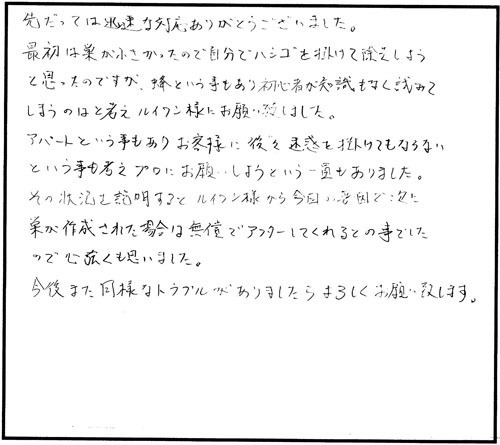 先だっては迅速な対応ありがとうございました。
最初は巣が小さかったので自分でハシゴを掛けて除去しよう
と思ったのですが、蜂という事もあり初心者が知識もなく試みて
しまうのはと考えルイワン様にお願い致しました。
アパートという事もありお客様に後々迷惑を掛けてもならない
という事も考えプロにお願いしようという一面もありました。
その状況を説明するとルイワン様から今回の要因で次に
巣が作成された場合は無償でアフターしてくれるとの事でした
ので心強くも思いました。
今後また同様なトラブルがありましたらよろしくお願い致します。